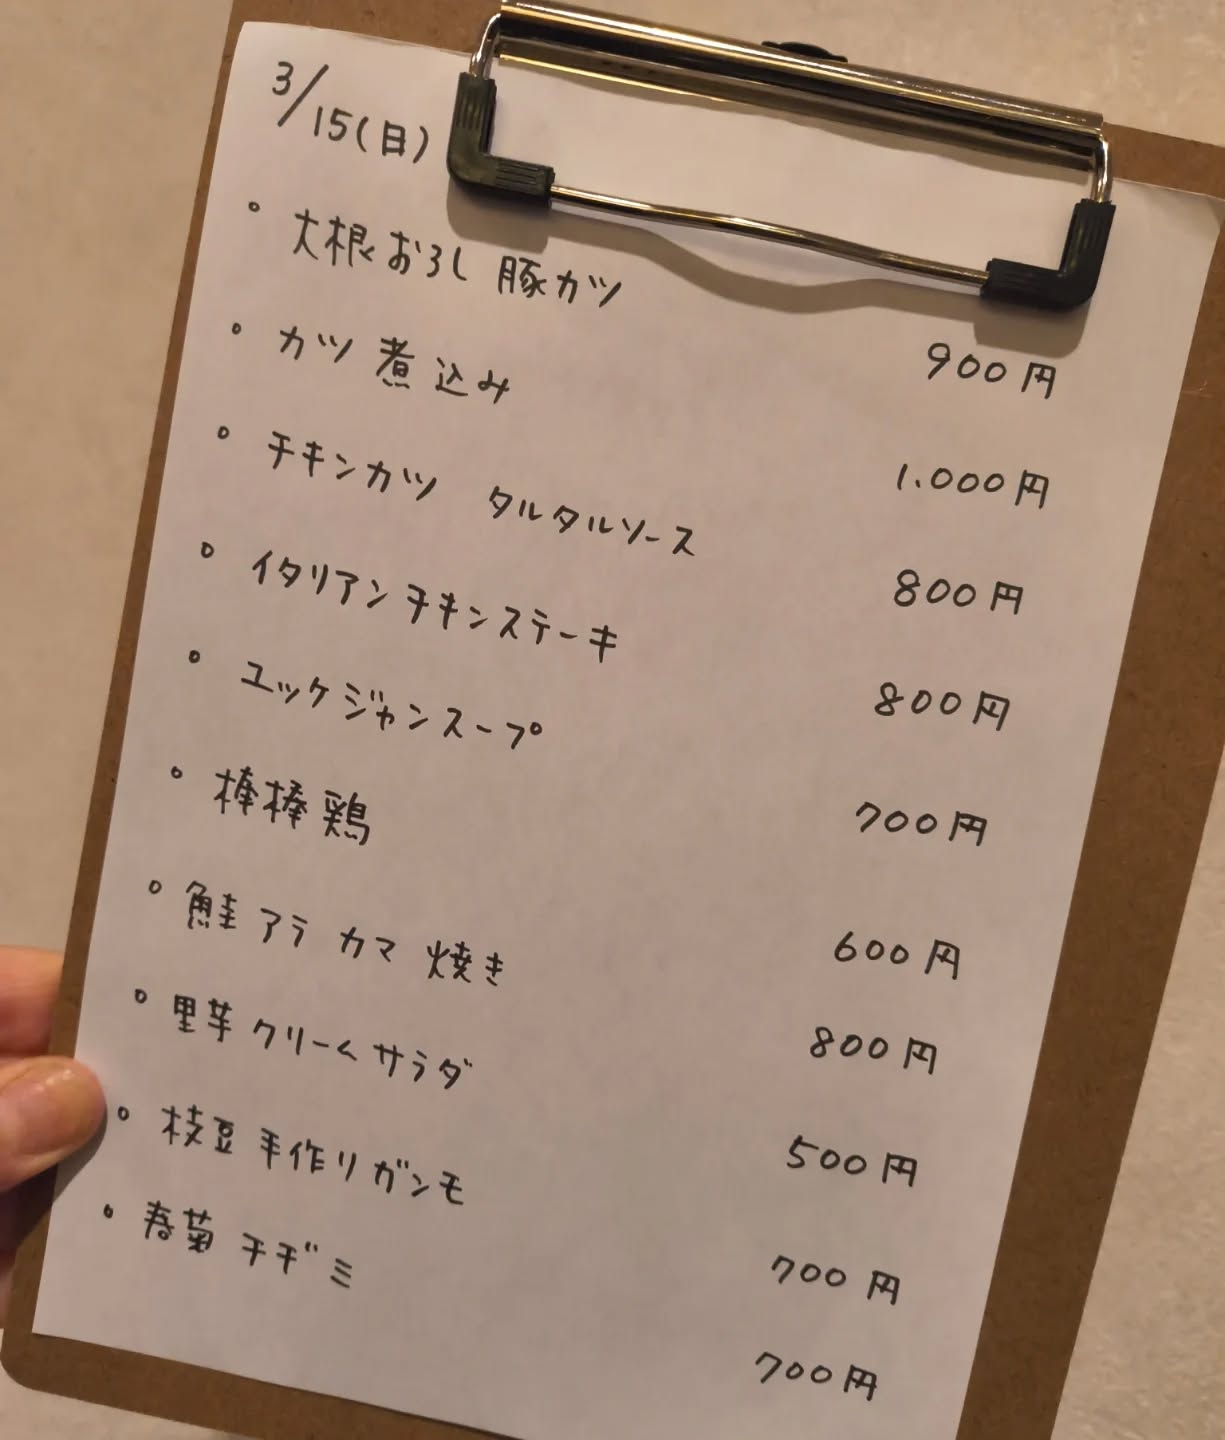 3/15(日)
• 大根おろし 豚カツ 900円
• カツ煮込み 1.000円
• チキンカツ タルタルソース 800円
• イタリアンチキンステーキ 800円
• ユッケジャンスープ 700円
• 棒棒鶏 600円
• 鮭アラ カマ 焼き 800円
• 里芋クリームサラダ 500円
• 枝豆手作りガンモ 700円
• 春菊 チヂミ 700円